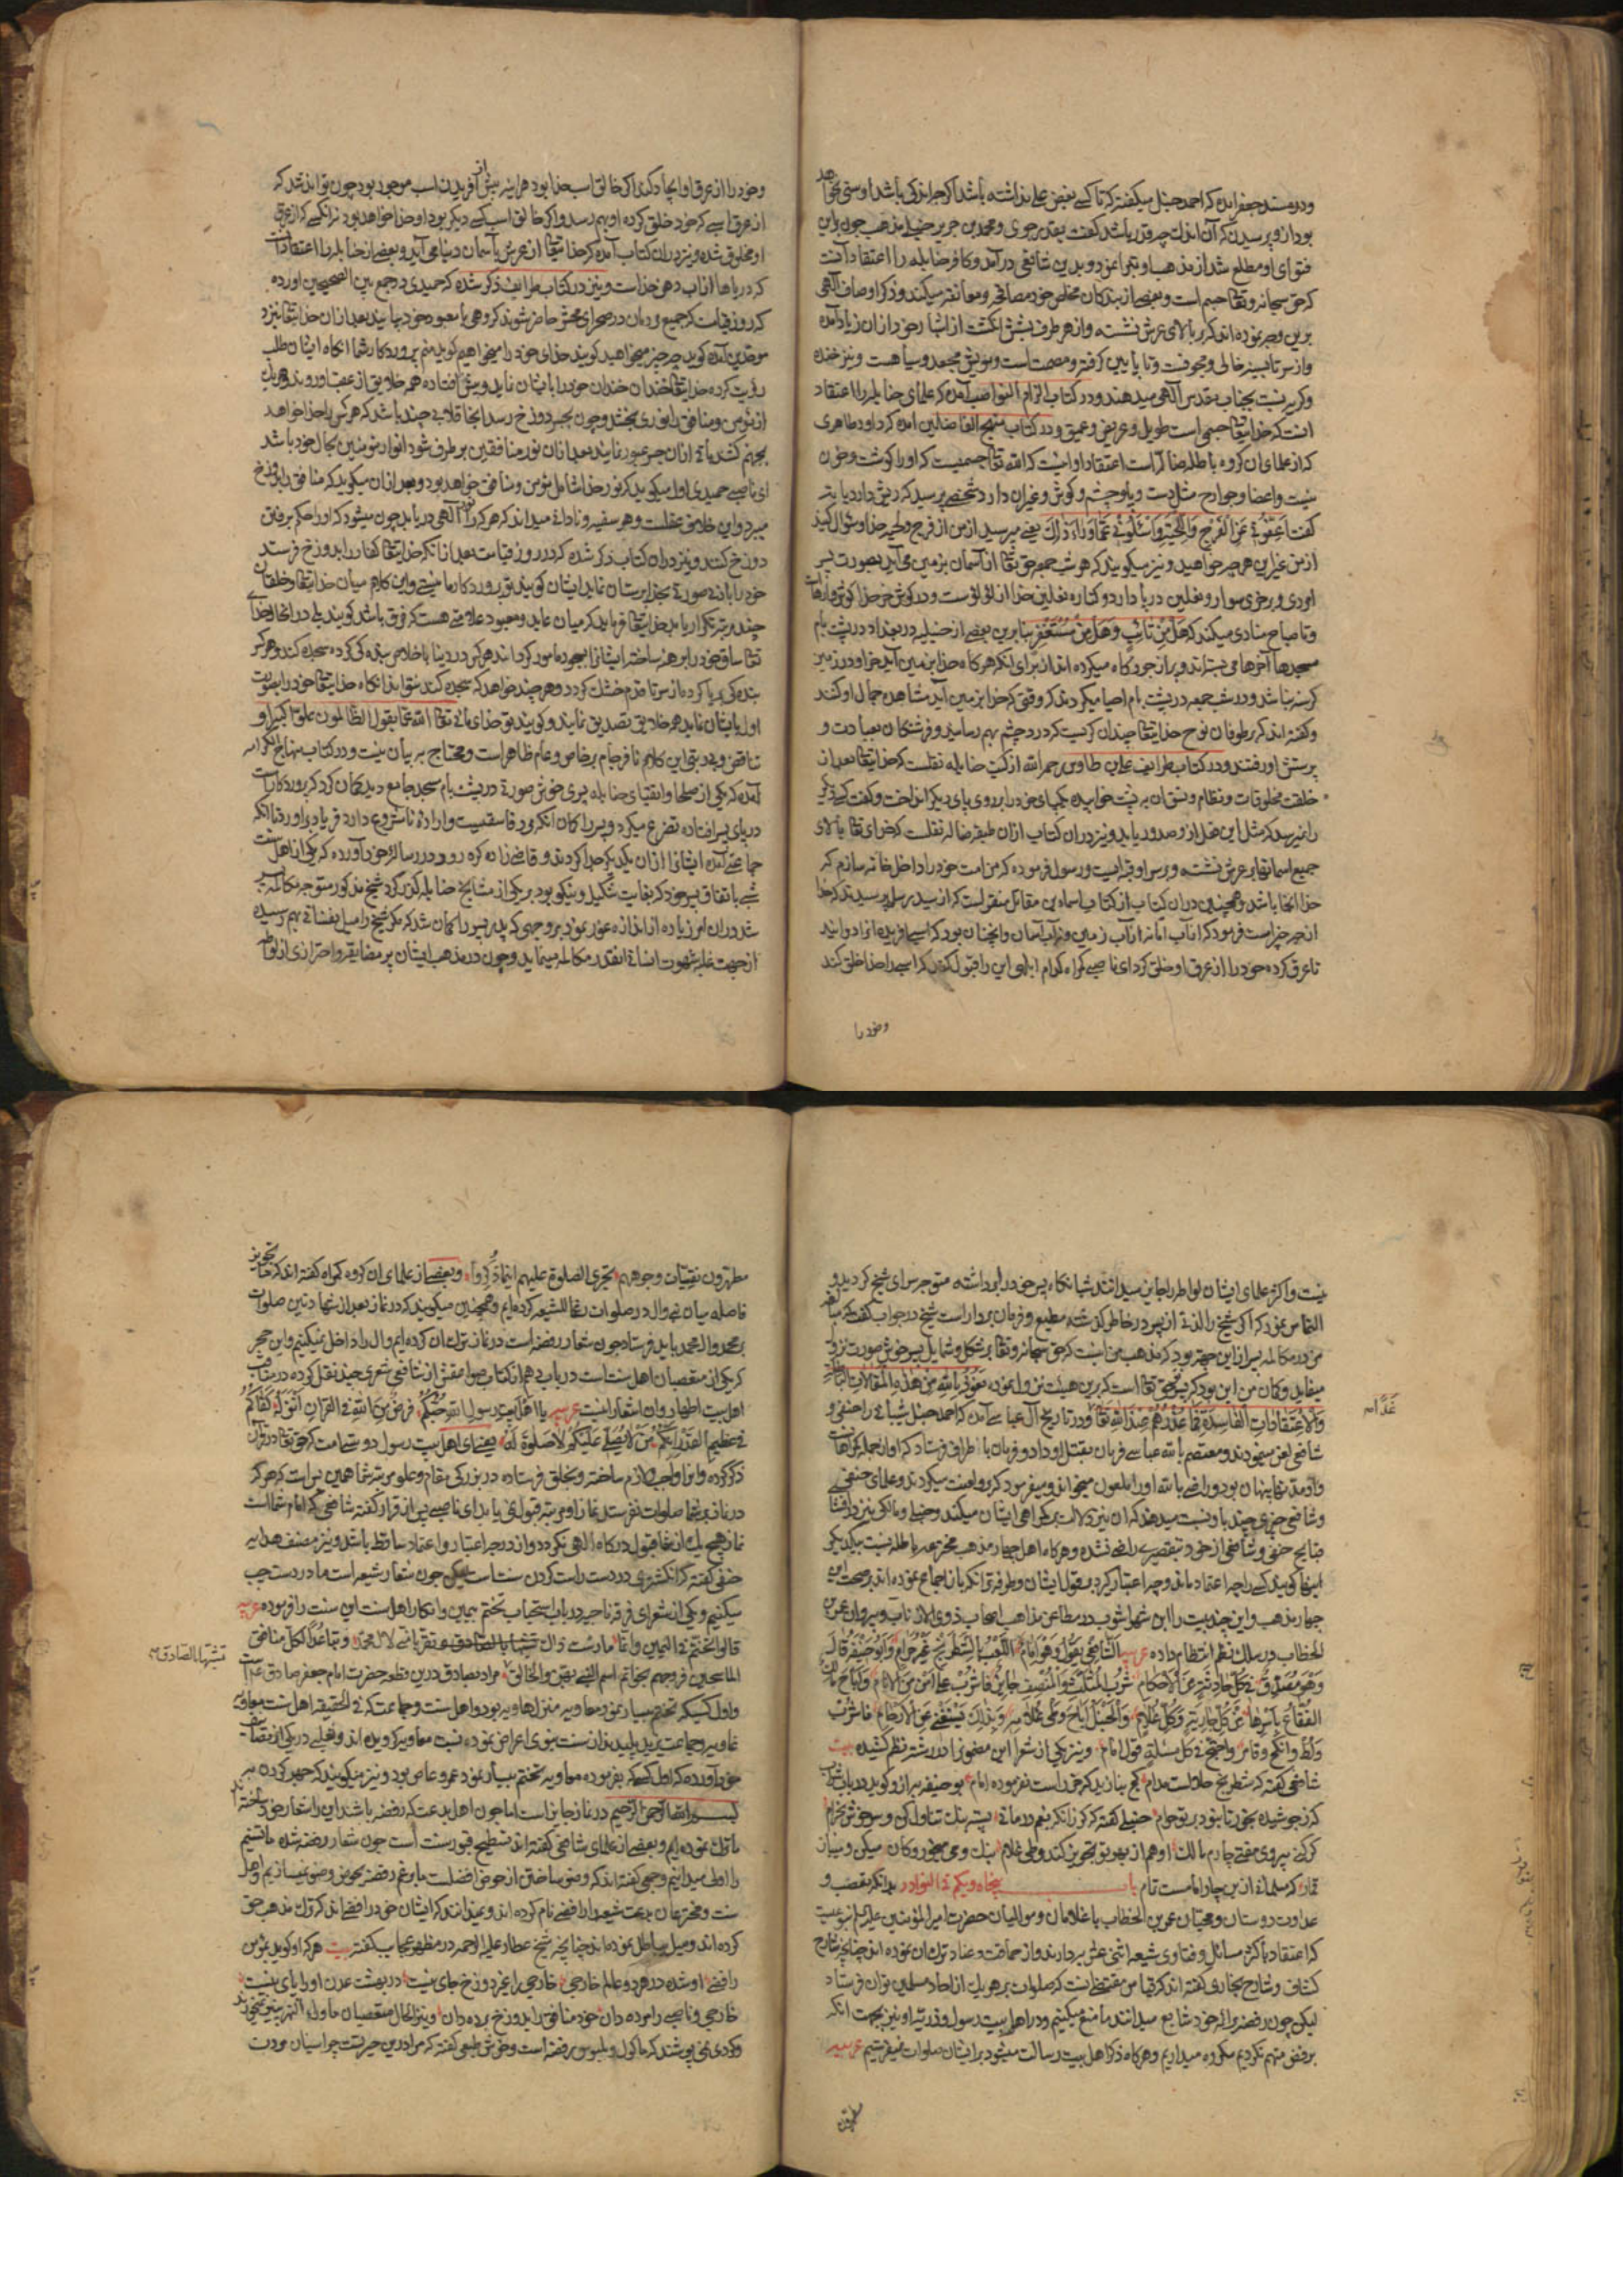 ودر مسند جعفر آمده که احمد حنبل میکفته که تا کسی بغض علی نداشته باشد اکرچه اندکی باشد او سنی نخواهد
بود از و پرسیدند که آن اندک چه قدر باشد کفت بقدر جوی و محمد بن جریر حنبلی مذهب چون باین
فتوای او مطلع شد از مذهب او تبرا نمود و بدین شافعی درآمد و کافر حنابله را اعتقاد آنست
که حق سبحانه و تعالی جسم است و بعضی از بندکان مخلص خود مصافحه و معانقه میکند و ذکر اوصاف آلهی
برین وجه نموده اند که بر بالای عرش نشسته و از هر طرف بشش انکشت از
و از سر تا بسینه خالی و مجوفست و تا پایین کرفته و مصمت است و مویش مجعد و سیاهست و نیز خنده
و کریه نسبت بجناب مقدس آلهی میدهند و در کتاب الزام النواصب آمده که علمای حنابله را اعتقاد
آنست که خدایتعالی جسمی است طویل و عریض و عمیق و در کتاب منهج الفاضلین آمده که داود ظاهری
که از علمای آن کروه باطله ضاله است اعتقاد او اینست که الله تعالی جسمیست که او را کوشت و خون
نیست و اعضا و جوارح مثل دست و پا و چشم و کوش و غیر آن دارد شخصی پرسید که ریش دارد یا نه
کفت اعفونی عن الفرج واللحیة واسئلونی عما وراء ذلک یعنی مپرسید از من از فرج و لحیه خدا و سوال کنید
از من غیر این هر چه خواهید و نیز میکویند که هر شب جمعه حق تعالی از آسمان بزمین می آید بصورت پسر
امردی و بر خری سوار و نعلین در پا دارد و کناره نعلین خدا از لؤلؤست و در کوش خر خدا کوشوارهاست
و تا صباح منادی میکند که هل من تائب وهل من مستغفر بنابرین بعضی از حنبلیه در بغداد در پشت بام
مسجدها آخرها می بسته اند و پر از جو و کاه میکرده اند از برای آنکه هرکاه خدا بزمین آید خر او در زمین
کرسنه نباشد و در شب جمعه در پشت بام احیا میکردند که وقتی که خدا بزمین آید مشاهده جمال او کنند
و کفته اند که بر طوفان نوح خدایتعالی چندان کریست که درد چشم بهم رسانید و فرشتکان بعیادت و
پرسش او رفتند و در کتاب طرایف علی بن طاوس رحمه الله از کتب حنابله نقلست که خدایتعالی بعد از
خلقت مخلوقات و نظام و نسق آن به پشت خوابیده یکپای خود را بر روی پای دیکر انداخت و کفت کسی دیکر
را نمیرسد که مثل این فعل از و صدور یابد و نیز در آن کتاب از آن طبقه ضاله نقلست که خدای تعالی بالای
جمیع آسمانها بر عرش نشسته و بر سر او قبه ایست و رسول فرموده که من امت خود را داخل خانه سازم که
خدا آنجا باشد و همچنین در آن کتاب از کتاب اسماء بن مقاتل منقولست که از سید رسل پرسیدند که خدا
از چه چیز است فرمود که از آب اما نه از آب زمین و نه آب آسمان و آنچنان بود که اسبی آفریده آنرا دوانید
تا عرق کرده خود را از عرق او خلق کرد ای ناصبی کمراه کدام ابلهی این را قبول کند که اسبی را خدا خلق کند
وخود را
و خود را از عرق او ایجاد کند اکر خالق اسب خدا بود هر آینه پیش از آفریدن اسب موجود بود چون تواند شد که
از عرق اسبی که خود خلق کرده او بهم رسد و اکر خالق اسب کسی دیکر بود او خدا خواهد بود نه آنکسی که از عرق
او مخلوق شده و نیز در آن کتاب آمده که خدایتعالی از عرش بآسمان دنیا می آید و بعضی از حنابله را اعتقاد آنست
که دریاها از آب دهن خداست و نیز در کتاب طرایف ذکر شده که حمیدی در جمع بین الصحیحین آورده
که روز قیامت که جمیع مردمان در صحرای محشر حاضر شوند کروهی با معبود خود بمانند بعد از آن خدایتعالی نزد
موحدین آمده کوید چه چیز میخواهید کویند خدای خود را میخواهیم کوید منم پروردکار شما آنکاه ایشان طلب
رؤیت کرده خدایتعالی خندان خندان خود را بایشان نماید و پیش افتاده همه خلایق از عقب او روند و هر یک
از مؤمن و منافق را نوری بخشد و چون بجسر دوزخ رسد آنجا قلابی چند باشد که هر کس را خدا خواهد
بجهنم کشد باقی از آن جسر عبور نمایند بعد از آن نور منافقین بر طرف شود انوار مؤمنین بحال خود باشد
ای ناصبی حمیدی اول میکوید که نور خدا شامل مؤمن و منافق خواهد بود و بعد از آن میکوید که منافق را بدوزخ
میبرد و این خلاف عقلست و هر سفیه و نادانی میداند که هر که را نور آلهی دریابد چون میشود که او را حکم برفتن
دوزخ کنند و نیز در آن کتاب ذکر شده که در روز قیامت بعد از آنکه خدایتعالی کفار را بدوزخ فرستد
خود را بادنی صورتی بخداپرستان نماید ایشان کویند تو پروردکار ما نیستی و این کلام میان خدایتعالی و خلقان
چند مرتبه تکرار یابد خدایتعالی فرماید که میان عابد و معبود علامتی هست که فرق باشد کویند بلی در آنحال خدای
تعالی ساق خود را برهنه ساخته ایشانرا بسجود مامور کرداند هر کس در دنیا باخلاص بندکی کرده سجده کند و هر که
بندکی بریا کرده از سر تا قدم خشک کردد و هر چند خواهد که سجده کند نتواند آنکاه خدایتعالی خود را بصورت
اول بایشان نماید همه خلایق تصدیق نمایند و کویند تو خدای مائی تعالی الله عما یقول الظالمون علوا کبیرا و
تناقض و بدبینی این کلام نافرجام بر خاص و عام ظاهر است و محتاج به بیان نیست و در کتاب منهاج الکرامه
آمده که یکی از صلحا و اتقیای حنابله پسری خوش صورت در پشت بام مسجد جامع دید کمان کرد که پروردکار است
در پای پسر افتاده تضرع میکرد و پسر را کمان آنکه مرد فاسقیست و اراده نامشروع دارد فریاد برآورد تا آنکه
جماعتی آمده ایشانرا از آن یکدیکر جدا کردند و قاضی زاده کره رودی در رساله خود آورده که یکی از اهل سنت
شبی باتفاق پسر خود که بغایت شکیل و نیکو بود بر یکی از مشایخ حنابله کذر کرد شیخ مذکور متوجه مکالمه پسر
شد و در آن امر زیاده از اندازه غور نمود بر وجهی که پدر پسر را کمان شد که مکر شیخ را میل نفسانی بهم رسیده
از جهت غلبه شهوت انسانی آنقدر مکالمه مینماید و چون در مذهب ایشان بر مضایقه و احترازی از لواط
نیست و اکثر علمای ایشان لواط را جایز میدانند شبانکاه پسر خود را برداشته متوجه سرای شیخ کردید و
التماس نمود که اکر شیخ را لذتی از پسر در خاطر کذشته مطیع و فرمان بردار است شیخ در جواب کفت که مبالغه
من در مکالمه پسر از این جهت بود که مذهب من اینست که حق سبحانه و تعالی بشکل و شمایل پسر خوش صورت نزول
مینماید و کمان من این بود که پسر تو حق تعالی است که برین هیئت نزول نموده نعوذ بالله من هذه المقالات الباطلة
والاعتقادات الفاسدة فما عذرهم عند الله تعالی و در تاریخ آل عباسی آمده که احمد حنبل شیبانی را حنفی و
شافعی لعن مینمودند و معتصم بالله عباسی فرمان بقتل او داد و فرمان باطراف فرستاد که او از جمله کمراهانست
و او مدتها پنهان بود و راضی بالله او را ملعون میخواند و میفرمود که بر و لعنت میکردند و علمای حنفی
و شافعی چیزی چند باو نسبت میدهند که آن نیز دلالت بر کمراهی ایشان میکند و حنبلی و مالکی نیز در افشا
قبایح حنفی و شافعی از خود بتقصیر راضی نشده و هرکاه اهل چهار مذهب مخترعه باطله نسبت بیکدیکر
اینها کویند کسی را چه اعتماد ماند و چه اعتبار کیرد بقول ایشان و طرفه تر آنکه باز اجماع نموده اند بر صحت این
چهار مذهب و این چند بیت را ابن شهر آشوب در مطاعن مذاهب اصحاب ذوی الاذناب و پیروان عمر بن
الخطاب در سلک نظم انتظام داده عربیه الشافعی یقول وهو امام اللعب بالشطرنج غیر حرام وابو حنیفة قال
وهو مصدق فی کل حادثة من الاحکام شرب المثلث والمنصف جایز فاشرب علی امن من الاثام واباح مالک
الفقاع باسرها عن کل جاریة وکل غلام والحنبلی اباح وطی غلامه وبذلک یستغنی عن الارحام فاشرب
ولط وانکح وقامر واحتجج فی کل مسئلة بقول امام و نیز یکی از شعرا این مضمون را در رشته نظم کشیده بیت
شافعی کفته که شطرنج حلالست مدام کج مبازید که حق است بفرموده امام بو حنیفه به از و کوید در باب شراب
که ز جوشیده بخور تا نبود بر تو حرام حنبلی کفته که کر زانکه بغم در مانی پستۀ بنک تناول کن و سرخوش بخرام
کر کنی پیروی مفتی چارم مالک او هم از بهر تو تجویز کند وطی غلام بنک و می میخور و کان میکن و میباز
قمار که مسلمانی ازین چار امامست تمام باب پنجاه و یکم فی النوادر بدانکه تعصب و
عداوت دوستان و محبان عمر بن الخطاب با غلامان و موالیان حضرت امیر المؤمنین علیه السلام بمرتبه ایست
که اعتقاد باکثر مسائل و فتاوی شیعه اثنی عشر بردارند و از حماقت و عناد ترک آن نموده اند چنانچه شارح
کشاف و شارح بخاری کفته اند که قیاس مقتضی آنست که صلوات بر هر یک از آحاد مسلمین توان فرستاد
لیکن چون رفضه برائمه خود شایع میدانند ما منع میکنیم و در اهل بیت رسول و ذریه او نیز بجهت آنکه
برفض متهم نکردیم مکروه میداریم و هرکاه ذکر اهل بیت رسالت میشود بر ایشان صلوات میفرستیم عربیه
مطهرون
مطهرون نقیات وجوههم تجری الصلوة علیهم اینما ذکروا و بعضی از علمای آن کروه کمراه کفته اند که ما تجویز
فاصله میان نبی و آل در صلوات رغما للشیعه کرده ایم و همچنین میکویند که در نماز بعد از شهادتین صلوات
بر محمد و آل محمد باید فرستاد چون شعار رفضه است در نماز ترک آن کرده ایم و آل را داخل نمیکنیم و ابن حجر
که یکی از متعصبان اهل سنت است در باب دهم از کتاب صواعقش از شافعی شعری چند نقل کرده در مناقب
اهل بیت اطهار و آن اشعار اینست عربیه یا اهل بیت رسول الله حبکم فرض من الله فی القرآن انزله کفاکم
فی عظیم القدر انکم من لا یصلی علیکم لا صلوة له یعنی ای اهل بیت رسول دوستی شما است که حق تعالی در قرآن
ذکر کرده و آنرا واجب و لازم ساخته و بخلق فرستاده در بزرکی مقام و علو مرتبه شما همین بس است که هر که
در نماز بر شما صلوات نفرستد نماز او مرتبه قبول نمی یابد ای ناصبی پس از قرار کفته شافعی که امام شماست
نماز هیچ یک از شما قبول درکاه الهی نکردد و از درجه اعتبار و اعتماد ساقط باشد و نیز مصنف هدایه
حنفی کفته که انکشتری در دست راست کردن سنت است لیکن چون شعار شیعه است ما در دست چپ
میکنیم و یکی از شعرای فرقه ناجیه در باب استحباب تختم بیمین و انکار اهل سنت این سنت را فرموده عربیه
قالوا التختم فی الیمین وانما مارست ذاک تشبها بالصادق وتقربا منی لآل محمد وتباعدا لکل منافق
الماسحین فروجهم بخواتم اسم النبی بهن والخالق مراد بصادق درین قطعه حضرت امام جعفر صادق عم است
و اول کسیکه تختم بیسار نمود معاویه منزلها ویه بود و اهل سنت و جماعت که فی الحقیقه اهل سنت معاویه
غاویه و جماعت یزید پلیدند از سنت نبوی اعراض نموده بسنت معاویه کرویده اند و ثعلبی در یکی از مصنفات
خود آورده که اول کسیکه بفرموده معاویه تختم بیسار نمود عمرو عاص بود و نیز میکویند که جهر کردن به
بسم الله الرحمن الرحیم در نماز جایز است اما چون اهل بدعت که رفضه باشند این را شعار خود ساخته اند
ما ترک نموده ایم و بعضی از علمای شافعی کفته اند تسطیح قبور سنت است چون شعار رفضه شده ما تسنیم
را اولی میدانیم و جمعی کفته اند که وضو ساختن از حوض افضلست ما برغم رفضه بحوض وضو نمیسازیم و اهل
سنت و مخترعان بدعت شیعه را رافضی نام کرده اند و نمیدانند که ایشان خود رافضی اند که ترک مذهب حق
کرده اند و میل بباطل نموده اند چنانچه شیخ عطار علیه الرحمه در مظهر عجایب کفته بیت هر که او کوید بمؤمن
رافضی او شده در هر دو عالم خارجی خارجی را بجز دوزخ جای نیست در بهشت عدن او را پای نیست
خارجی و ناصبی را مرده دان خود منافق را بدوزخ برده دان و نیز الحال متعصبان ماوراء النهر پنیر نمیخورند
و کودی نمی پوشند که ماکول و ملبوس رفضه است و خوش طبعی کفته که مرا درین حیرتست چرا سنیان مودت
عند الله
تشبها بالصادق